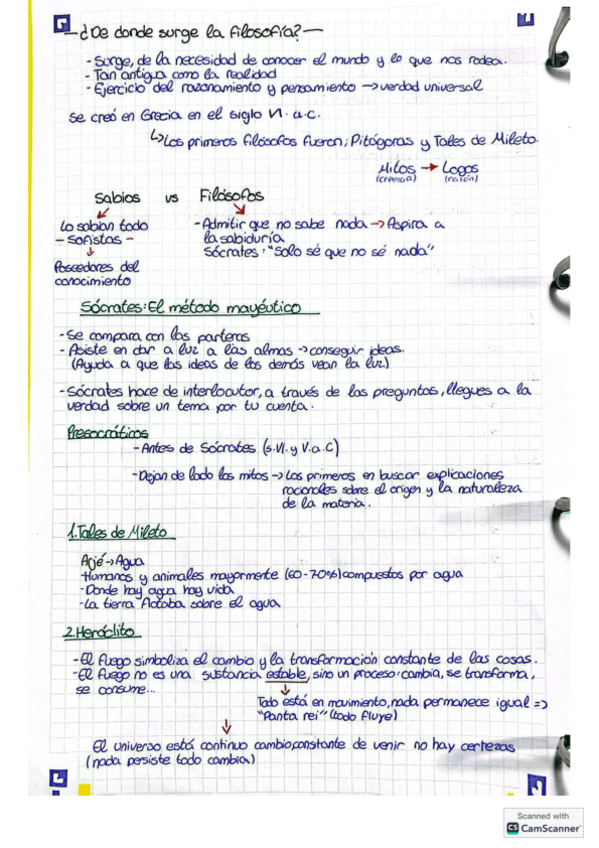 ¿De donde surge la filosofía?
- Surge, de la necesidad de conocer el mundo y lo que nos rodea.
- Tan antigua como la realidad
- Ejercicio del razonamiento y pensamiento → verdad universal
Se creó en Grecia en el siglo VI. a.c.
↳ Los primeros filósofos fueron; Pitágoras y Tales de Mileto.
Mitos → Logos
(creencia) (razón)
Sabios vs Filósofos
Lo sabían todo
- Sofistas -
Poseedores del
conocimiento
- Admitir que no sabe nada → Aspira a
la sabiduría
Sócrates: "Solo sé que no sé nada"
Sócrates: El método mayéutico
- Se compara con las parteras
- Asiste en dar a luz a las almas → conseguir ideas.
(Ayuda a que las ideas de los demás vean la luz)
- Sócrates hace de interlocutor, a través de las preguntas, llegues a la
verdad sobre un tema por tu cuenta.
Presocráticos
- Antes de Sócrates (s.VI. y V.a.C)
- Dejan de lado los mitos → Los primeros en buscar explicaciones
racionales sobre el origen y la naturaleza
de la materia.
1. Tales de Mileto
Arjé → Agua
- Humanos y animales mayormente (60-70%) compuestos por agua
- Donde hay agua hay vida
- La tierra flotaba sobre el agua
2. Heráclito
- El fuego simboliza el cambio y la transformación constante de las cosas.
- El fuego no es una sustancia estable, sino un proceso: cambia, se transforma,
se consume...
Todo está en movimiento, nada permanece igual =>
"Panta rei" (todo fluye)
El universo está continuo cambio, constante de venir no hay certezas
(nada persiste todo cambia)
Scanned with
CS CamScanner